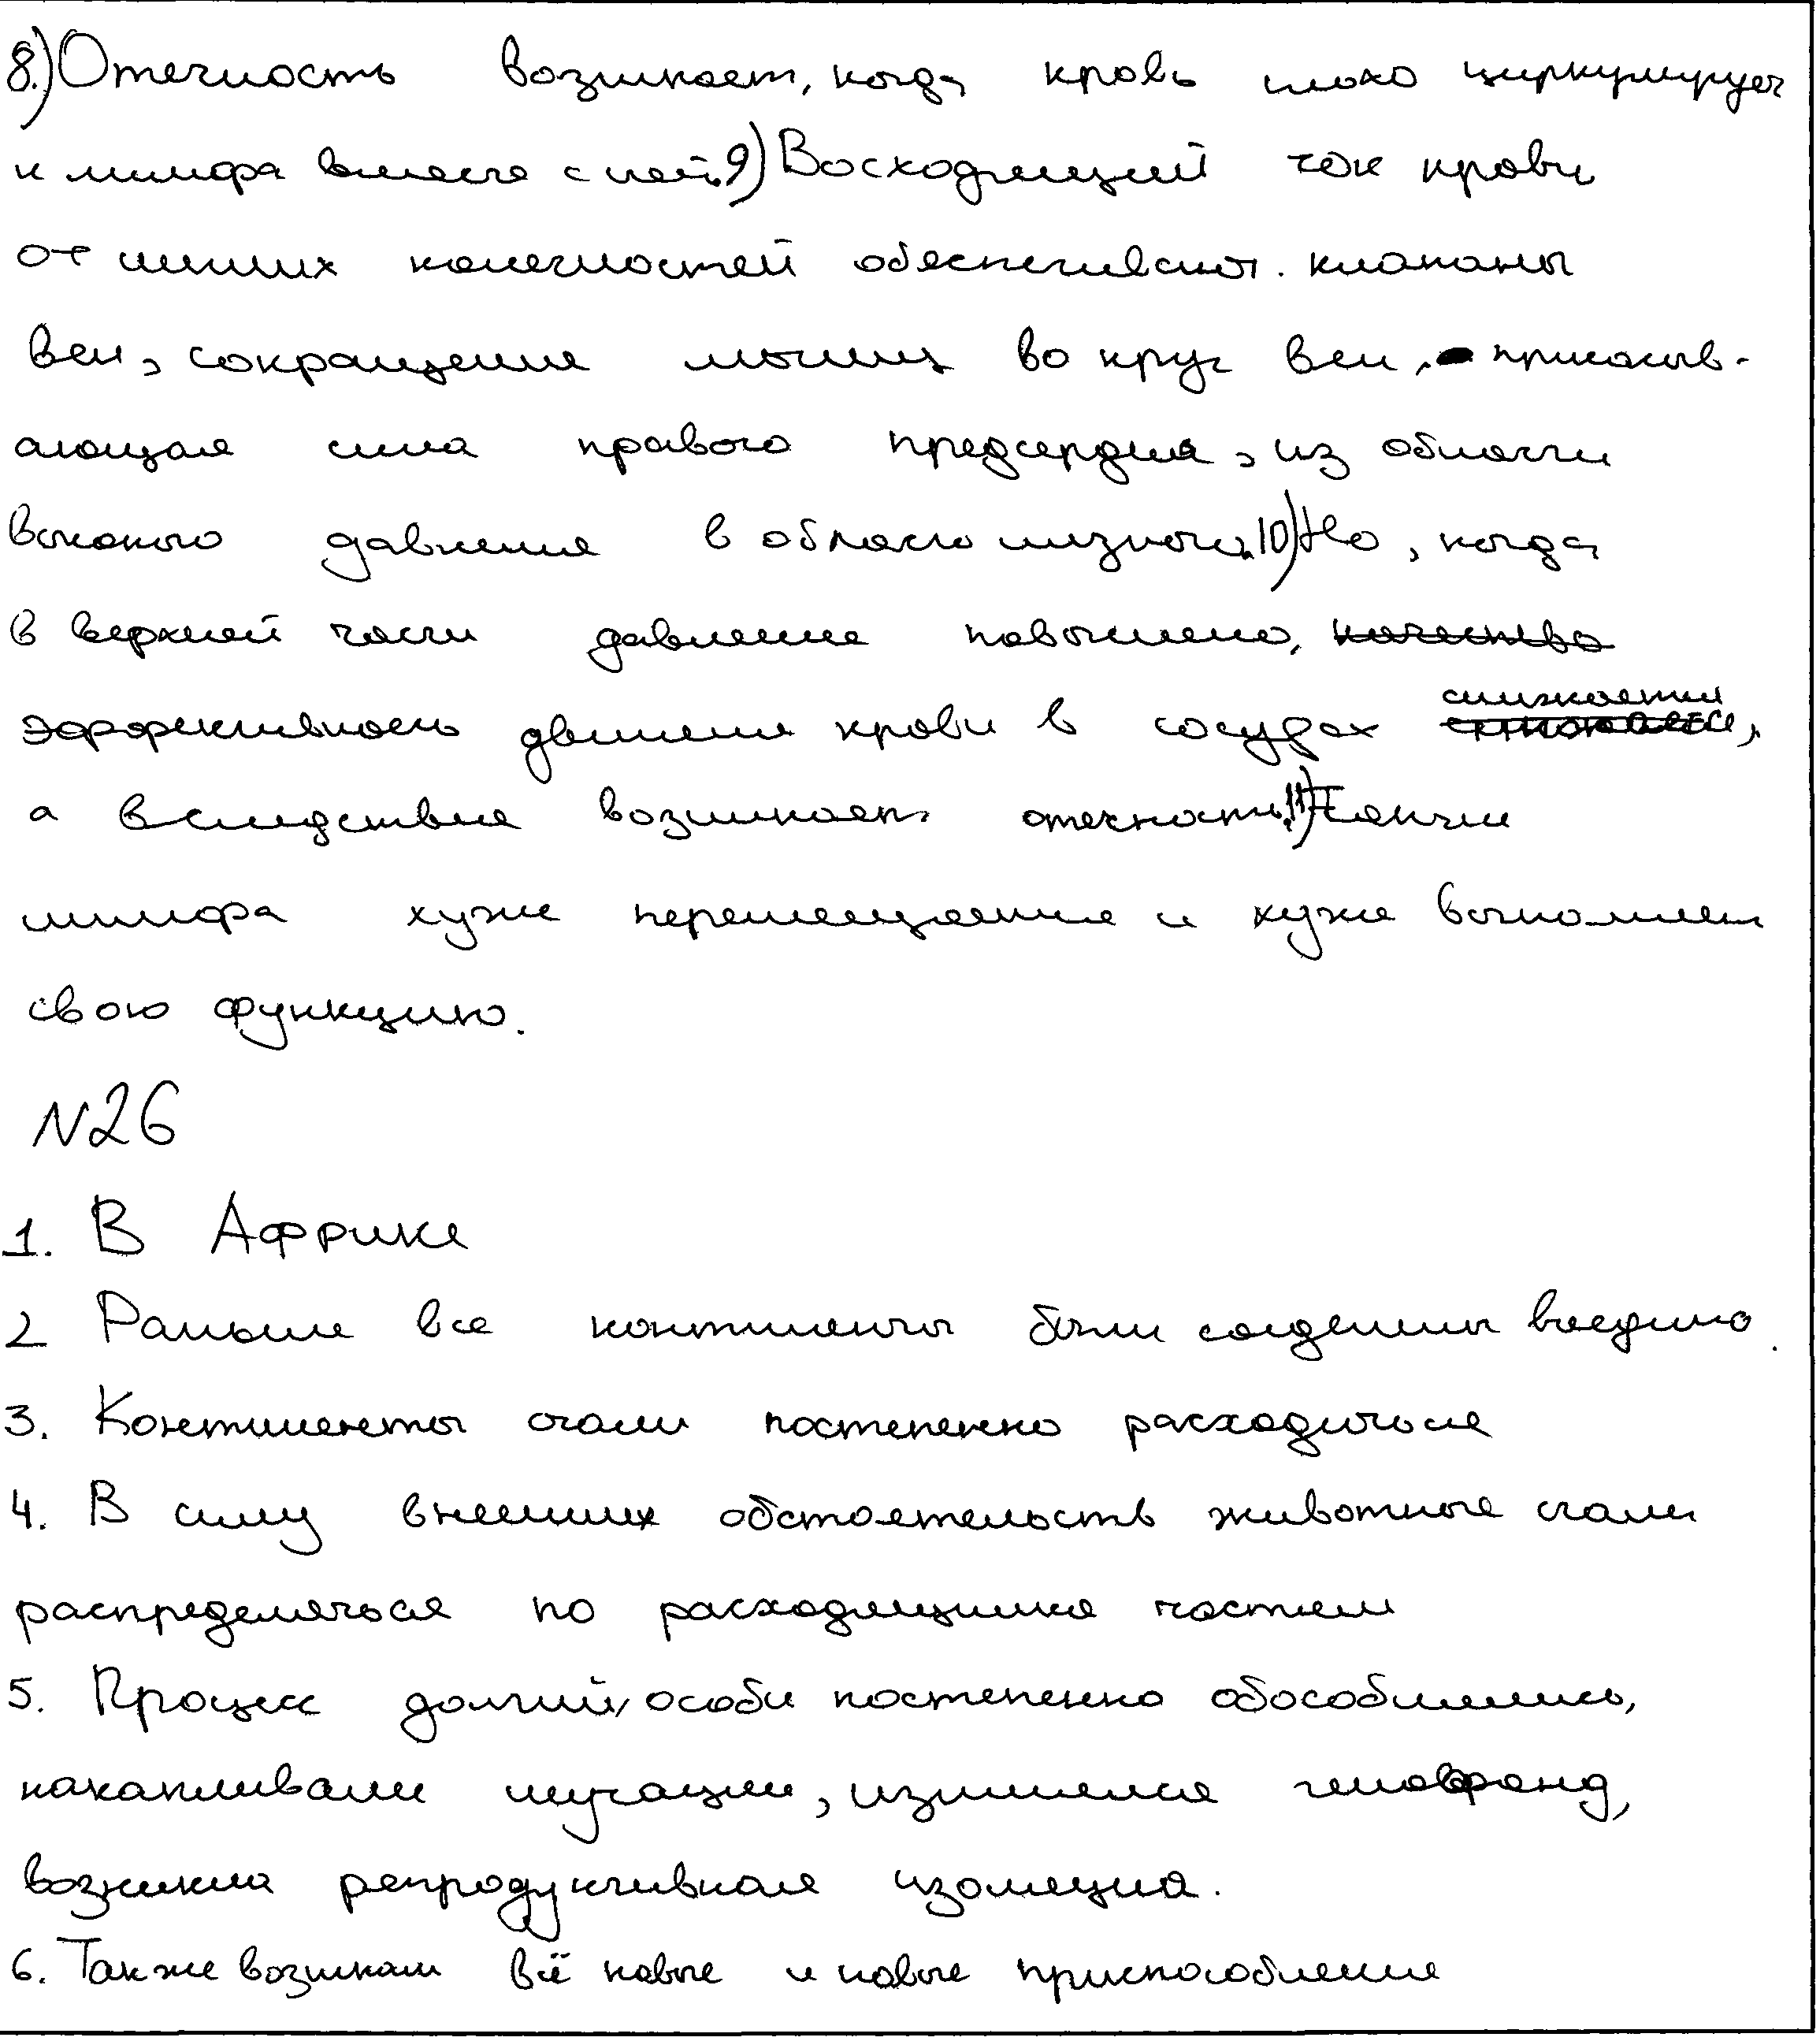 8.) Отечность возникает, когда кровь плохо циркулирует
и лимфа вместе с ней. 9) Восходящий ток крови
от нижних конечностей обеспечивают клапаны
вен, сокращение мышц во круг вен, присасыв-
ающая сила правого предсердия, из области
высокого давления в область низкого. 10) Но, когда
в верхней части давление повышено, качество
эффективность движения крови в сосудах снижается,
а вследствие возникает отечность. 11)
лимфа хуже перемещается и хуже выполняет
свою функцию.
№26
1. В Африке
2 Раньше все континенты были соеденины воедино.
3. Континенты стали постепенно расходиться
4. В силу внешних обстоятельств животные стали
распределяться по расходящимся частям
5. Процесс долгий, особи постепенно обособлялись,
накапливали мутации, изменялся генофонд,
возникла репродуктивная изоляция.
6. Также возникали всё новые и новые приспособления